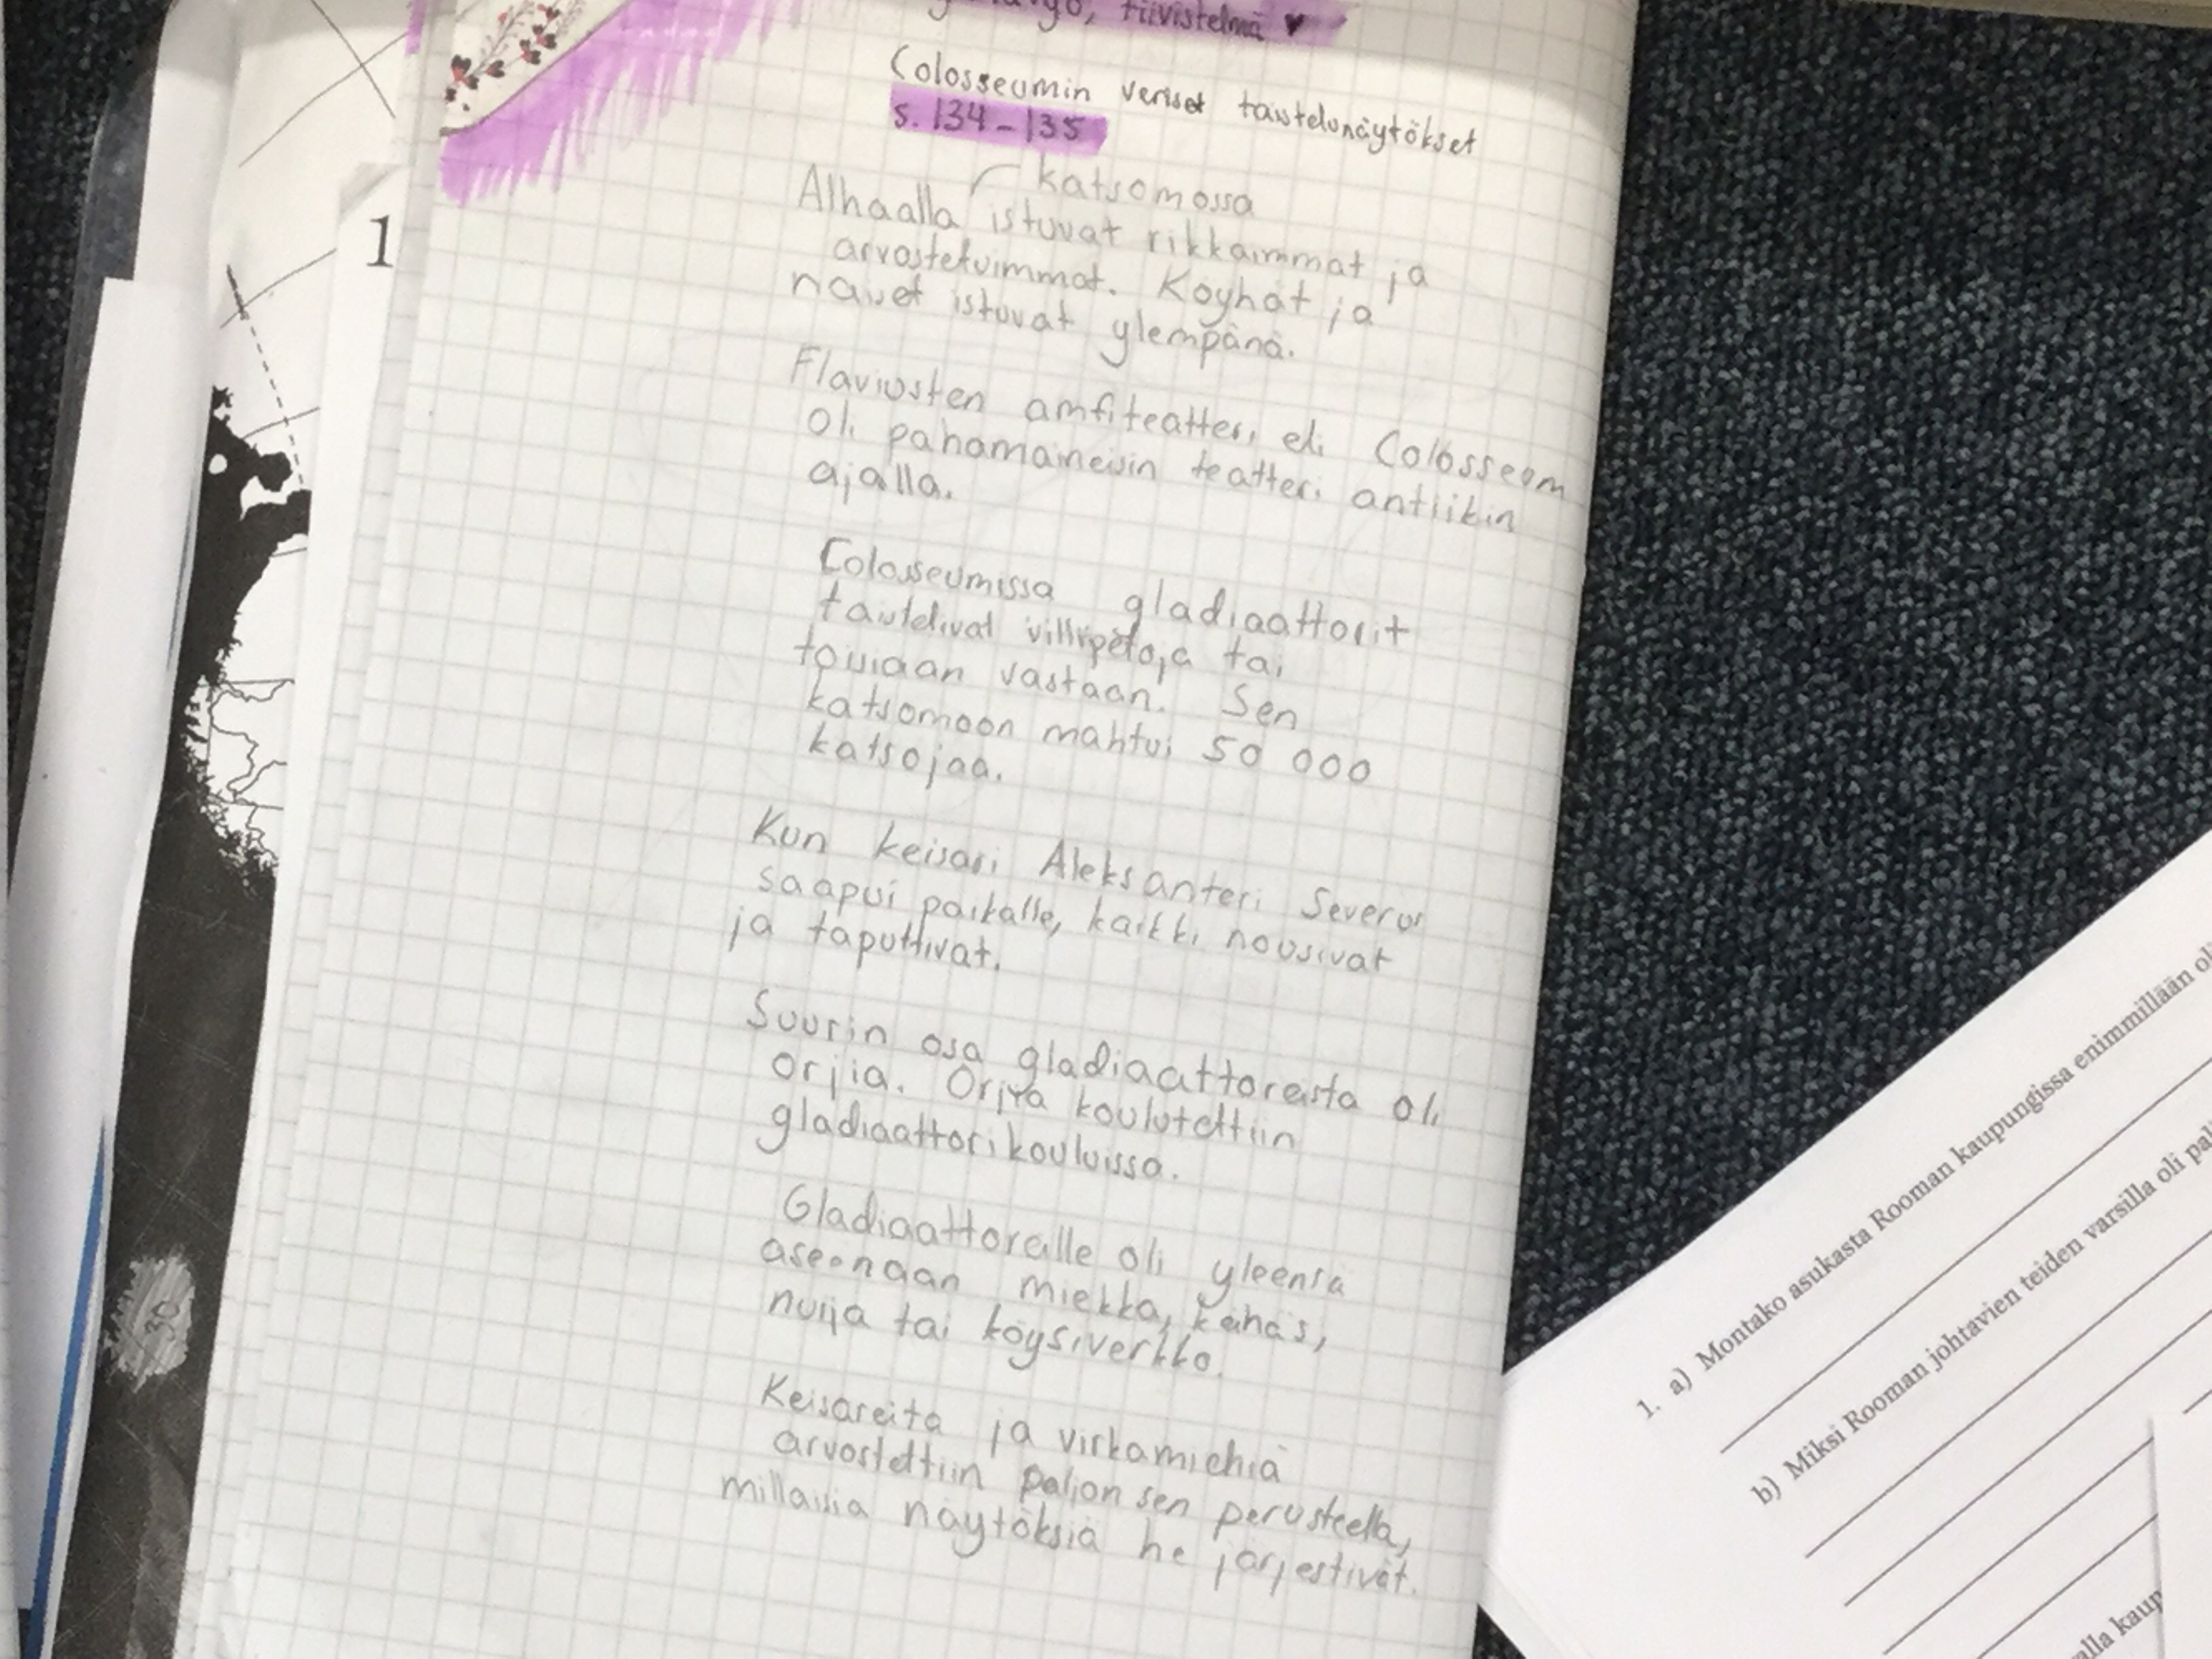 tiivistelmä ♥
Colosseumin veriset taistelunäytökset
s. 134-135
katsomossa
Alhaalla istuvat rikkaimmat ja
arvostetuimmat. Köyhät ja
naiset istuvat ylempänä.
Flaviusten amfiteatteri eli Colosseum
oli pahamaineisin teatteri antiikin
ajalla.
Colosseumissa gladiaattorit
taistelivat villipetoja tai
toisiaan vastaan. Sen
katsomoon mahtui 50 000
katsojaa.
Kun keisari Aleksanteri Severus
saapui paikalle, kaikki nousivat
ja taputtivat.
Suurin osa gladiaattoreista oli
orjia. Orjia koulutettiin
gladiaattorikouluissa.
Gladiaattoreille oli yleensä
aseenaan miekka, keihäs,
nuija tai köysiverkko.
Keisareita ja virkamiehiä
arvostettiin paljon sen perusteella,
millaisia näytöksiä he järjestivät.
1
30
1. a) Montako asukasta Rooman kaupungissa enimmillään oli
b) Miksi Rooman johtavien teiden varsilla oli pal
alla kaup